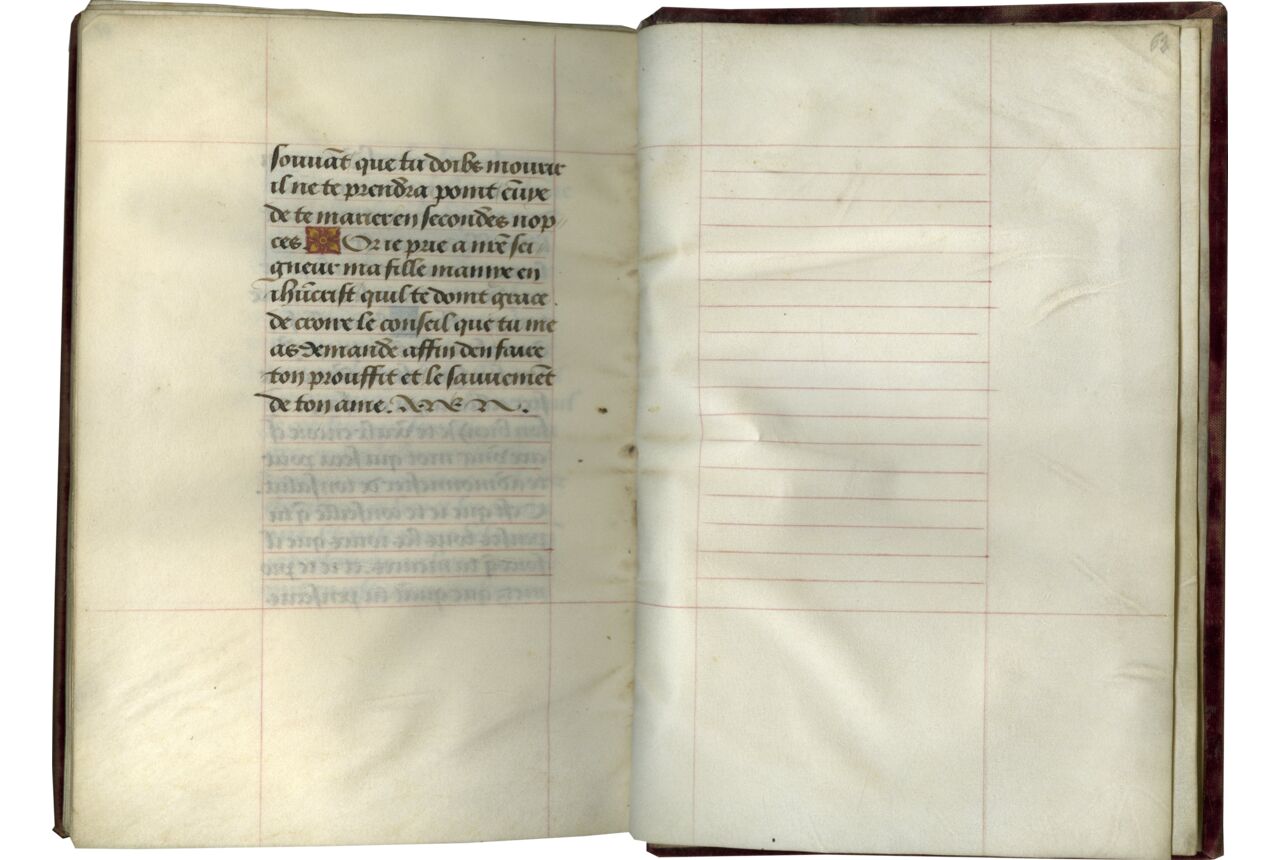 souuāt que tu doibs mourir
il ne te prendra point ēuye
de te marier en secondes nop
ces. Or ie prie a nr̄e sei
gneur ma fille mamye en
ihūcrist quil te doint grace
de croire le conseil que tu me
as demande affin den faire
ton prouffit et le sauuemēt
de ton ame.